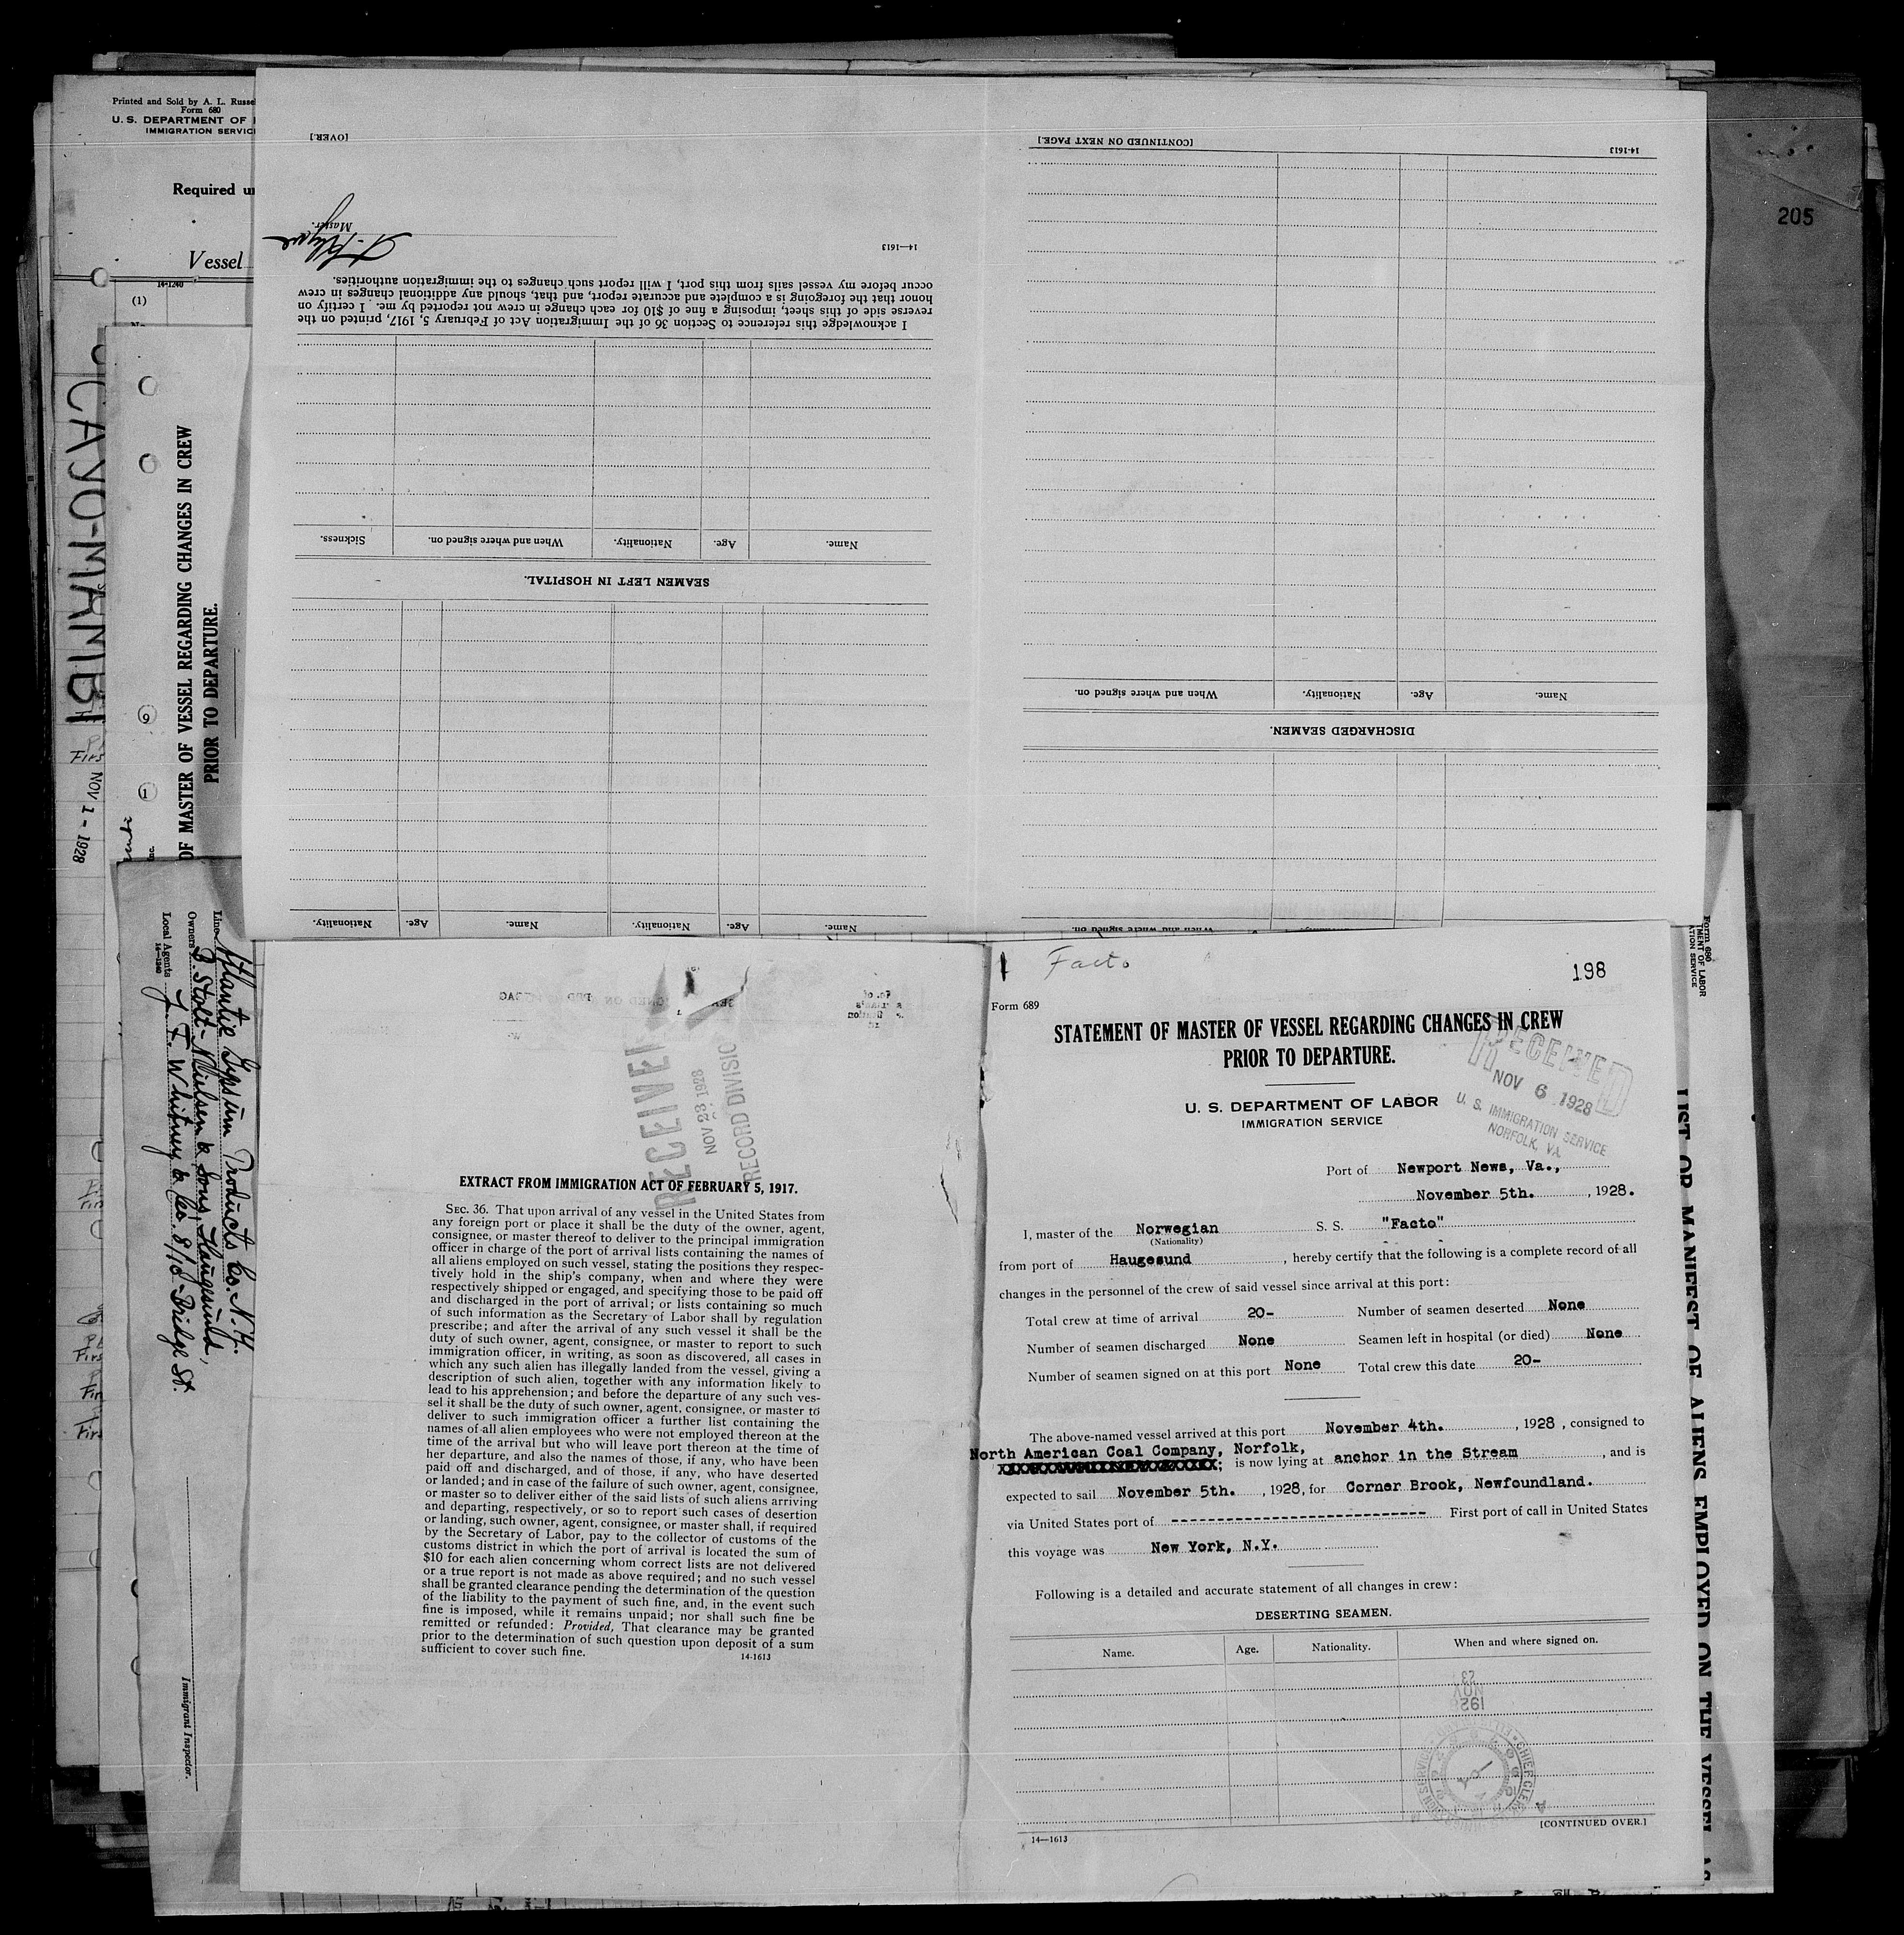 Printed and Sold by A. L. Russel
Form 680
U. S. DEPARTMENT OF
IMMIGRATION SERVIC
Required u
Vessel
14-1240
(1)
CAYO-MAMBI
NOV 1 - 1928
OF MASTER OF VESSEL REGARDING CHANGES IN CREW
PRIOR TO DEPARTURE.
Line Atlantic Gypsum Products Co. N.Y.
Owners B. Stolt-Nielsen & Sons, Haugesund,
Local Agents J. F. Whitney & Co. 8/10 Bridge St.
14-1240
Immigrant Inspector.
205
[CONTINUED ON NEXT PAGE.]
14-1613
Name.
Age.
Nationality.
When and where signed on.
DISCHARGED SEAMEN.
When and where signed on.
Name. Age. Nationality. Name. Age. Nationality.
SEAMEN LEFT IN HOSPITAL.
Name. Age. Nationality. When and where signed on. Sickness.
I acknowledge this reference to Section 36 of the Immigration Act of February 5, 1917, printed on the
reverse side of this sheet, imposing a fine of $10 for each change in crew not reported by me. I certify on
honor that the foregoing is a complete and accurate report, and that, should any additional changes in crew
occur before my vessel sails from this port, I will report such changes to the immigration authorities.
14—1613
Master.
[OVER.]
RECEIVED
NOV 23 1928
RECORD DIVISIO
EXTRACT FROM IMMIGRATION ACT OF FEBRUARY 5, 1917.
SEC. 36. That upon arrival of any vessel in the United States from
any foreign port or place it shall be the duty of the owner, agent,
consignee, or master thereof to deliver to the principal immigration
officer in charge of the port of arrival lists containing the names of
all aliens employed on such vessel, stating the positions they respec-
tively hold in the ship's company, when and where they were
respectively shipped or engaged, and specifying those to be paid off
and discharged in the port of arrival; or lists containing so much
of such information as the Secretary of Labor shall by regulation
prescribe; and after the arrival of any such vessel it shall be the
duty of such owner, agent, consignee, or master to report to such
immigration officer, in writing, as soon as discovered, all cases in
which any such alien has illegally landed from the vessel, giving a
description of such alien, together with any information likely to
lead to his apprehension; and before the departure of any such ves-
sel it shall be the duty of such owner, agent, consignee, or master to
deliver to such immigration officer a further list containing the
names of all alien employees who were not employed thereon at the
time of the arrival but who will leave port thereon at the time of
her departure, and also the names of those, if any, who have been
paid off and discharged, and of those, if any, who have deserted
or landed; and in case of the failure of such owner, agent, consignee,
or master so to deliver either of the said lists of such aliens arriving
and departing, respectively, or so to report such cases of desertion
or landing, such owner, agent, consignee, or master shall, if required
by the Secretary of Labor, pay to the collector of customs of the
customs district in which the port of arrival is located the sum of
$10 for each alien concerning whom correct lists are not delivered
or a true report is not made as above required; and no such vessel
shall be granted clearance pending the determination of the question
of the liability to the payment of such fine, and, in the event such
fine is imposed, while it remains unpaid; nor shall such fine be
remitted or refunded: Provided, That clearance may be granted
prior to the determination of such question upon deposit of a sum
sufficient to cover such fine.
14-1613
Facto
198
Form 689
STATEMENT OF MASTER OF VESSEL REGARDING CHANGES IN CREW
PRIOR TO DEPARTURE.
RECEIVED
NOV 6 1928
U. S. IMMIGRATION SERVICE
NORFOLK, VA
U. S. DEPARTMENT OF LABOR
IMMIGRATION SERVICE
Port of Newport News, Va.,
November 5th. , 1928.
I, master of the Norwegian S. S. "Facto"
(Nationality)
from port of Haugesund , hereby certify that the following is a complete record of all
changes in the personnel of the crew of said vessel since arrival at this port:
Total crew at time of arrival 20- Number of seamen deserted None
Number of seamen discharged None Seamen left in hospital (or died) None
Number of seamen signed on at this port None Total crew this date 20-
The above-named vessel arrived at this port November 4th. , 1928 , consigned to
North American Coal Company, Norfolk,
; is now lying at anchor in the Stream , and is
expected to sail November 5th. , 1928, for Corner Brook, Newfoundland.
via United States port of ---------------------------- First port of call in United States
this voyage was New York, N.Y.
Following is a detailed and accurate statement of all changes in crew:
DESERTING SEAMEN.
Name. Age. Nationality. When and where signed on.
23
NOV
1928
CHIEF CLERK
[CONTINUED OVER.]
14—1613
Form 680
MENT OF LABOR
ATION SERVICE
LIST OR MANIFEST OF ALIENS EMPLOYED ON THE VESSEL AS